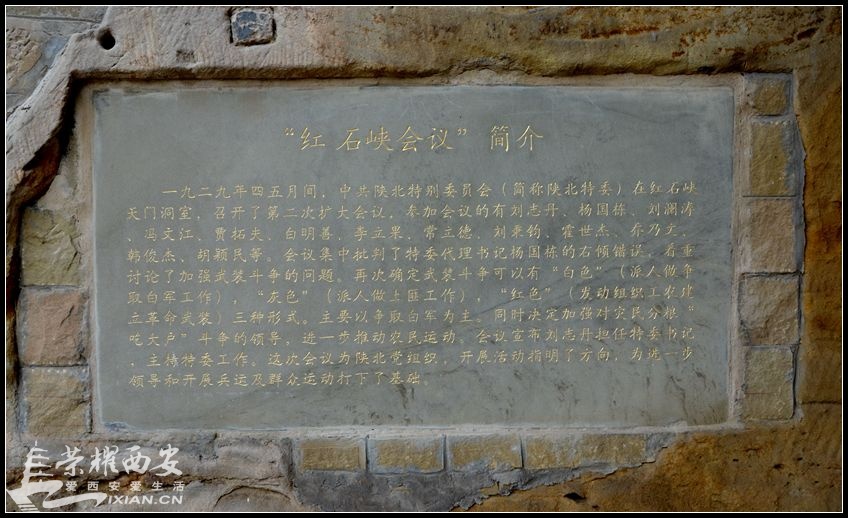 “红石峡会议”简介
一九二九年四五月间，中共陕北特别委员会（简称陕北特委）在红石峡
天门洞室，召开了第二次扩大会议，参加会议的有刘志丹、杨国栋、刘澜涛
、冯文江、贾拓夫、白明善、李立果、常立德、刘秉钧、霍世杰、乔乃文、
韩俊杰、胡颖民等。会议集中批判了特委代理书记杨国栋的右倾错误，着重
讨论了加强武装斗争的问题。再次确定武装斗争可以有“白色”（派人做争
取白军工作），“灰色”（派人做土匪工作），“红色”（发动组织工农建
立革命武装）三种形式。主要以争取白军为主。同时决定加强对灾民分粮“
吃大户”斗争的领导，进一步推动农民运动。会议宣布刘志丹担任特委书记
，主持特委工作。这次会议为陕北党组织，开展活动指明了方向，为进一步
领导和开展兵运及群众运动打下了基础。
荣耀西安
爱西安爱生活
IXIAN.CN